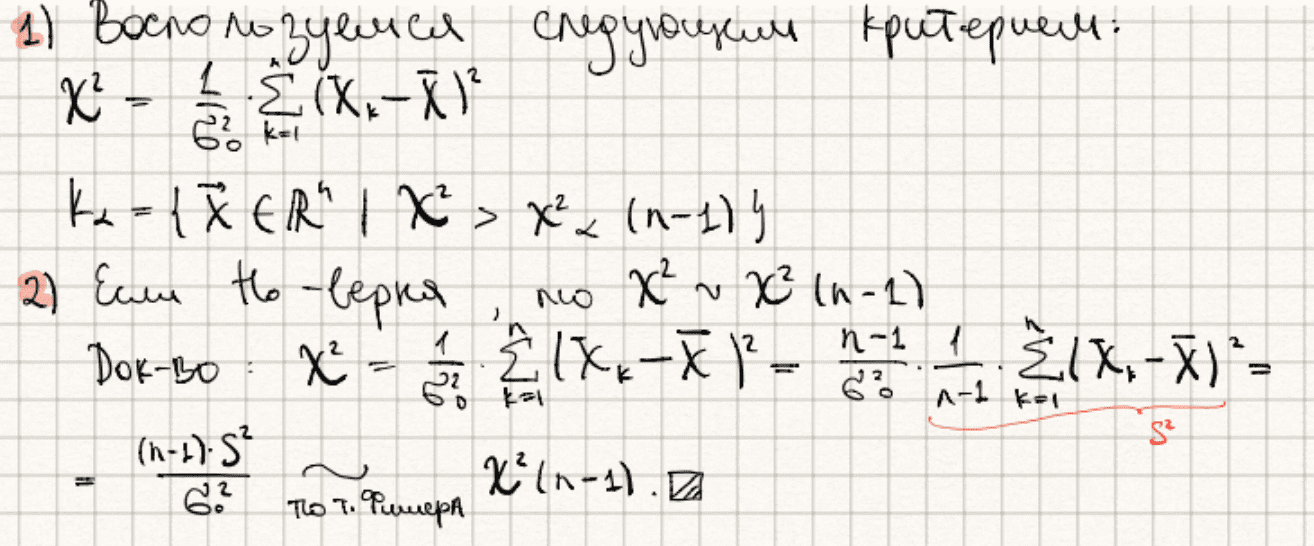 1) Воспользуемся следующим критерием:
χ² = 1/σ₀² · Σₖ₌₁ⁿ (Xₖ − X̄)²
K_α = { X⃗ ∈ ℝⁿ | χ² > χ²_α (n−1) }
2) Если H₀ - верна, то χ² ~ χ² (n−1)
Док-во: χ² = 1/σ₀² · Σₖ₌₁ⁿ (Xₖ − X̄)² = (n−1)/σ₀² · 1/(n−1) · Σₖ₌₁ⁿ (Xₖ − X̄)² =
S²
= (n−1)·S²/σ₀² ~ по т. Фишера χ² (n−1).